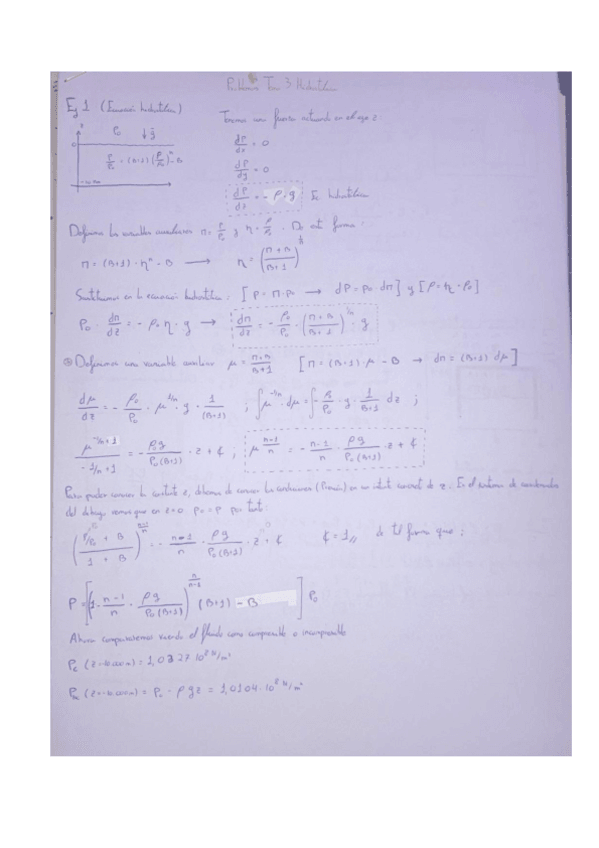 Problemas Tema 3 Hidrostática
Ej 1 (Ecuación hidrostática)
Tenemos una fuerza actuando en el eje z:
P₀ ↓ g⃗
z
0
P/P₀ = (B+1)(ρ/ρ₀)ⁿ - B
dP/dx = 0
dP/dy = 0
dP/dz = -ρ·g Ec hidrostática
Definimos las variables π = P/P₀ y η = ρ/ρ₀. De esta forma:
π = (B+1)·ηⁿ - B ⟶ η = ((π+B)/(B+1))^(1/n)
Sustituimos en la ecuación hidrostática: [P = π·P₀ ⟶ dP = P₀·dπ] y [ρ = η·ρ₀]
P₀·dπ/dz = -ρ₀η·g ⟶ dπ/dz = -ρ₀/P₀·((π+B)/(B+1))^(1/n)·g
Definimos una variable auxiliar μ = (π+B)/(B+1) [π = (B+1)·μ - B → dπ = (B+1)dμ]
dμ/dz = -ρ₀/P₀·μ^(1/n)·g·1/(B+1) ; ∫μ^(-1/n)·dμ = ∫-ρ₀/P₀·g·1/(B+1) dz ;
μ^(-1/n+1)/(-1/n+1) = -ρ₀g/(P₀(B+1))·z + ¢ ; μ^((n-1)/n) = -(n-1)/n·ρg/(P₀(B+1))·z + ¢
Para poder conocer la constante ¢, debemos de conocer las condiciones (Presión) en un valor concreto de z. En el sistema de coordenadas
del dibujo vemos que en z=0 P₀ = P por tanto:
((P/P₀ + B)/(1 + B))^((n-1)/n) = -(n-1)/n·ρg/(P₀(B+1))·z + ¢ ¢ = 1 // de tal forma que:
P = [(1-(n-1)/n·ρg/(P₀(B+1)))^(n/(n-1)) (B+1) - B] P₀
Ahora compararemos viendo el fluido como compresible o incompresible
P_c (z=-10.000m) = 1,0327·10⁸ N/m²
(z=-10.000m) = P₀ - ρgz = 1,0104·10⁸ N/m²